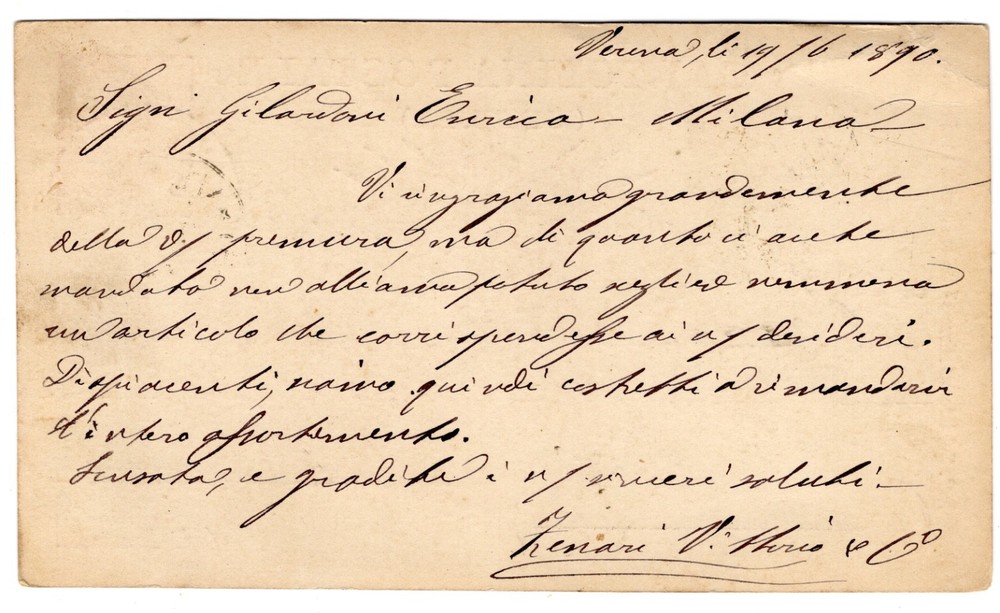 Verona, li 19/6 1890.
Sigri Gilardoni Enrico - Milano
Vi ringraziamo grandemente
della v/ premura, ma di quanto ci avete
mandato non abbiamo potuto sceglier nemmeno
un articolo che corrispondesse ai n/ desideri.
Dispiacenti, siamo quindi costretti a rimandarvi
l'intero assortimento.
Scusate, e gradite i n/ sinceri saluti.
Zenari Vittorio & Co